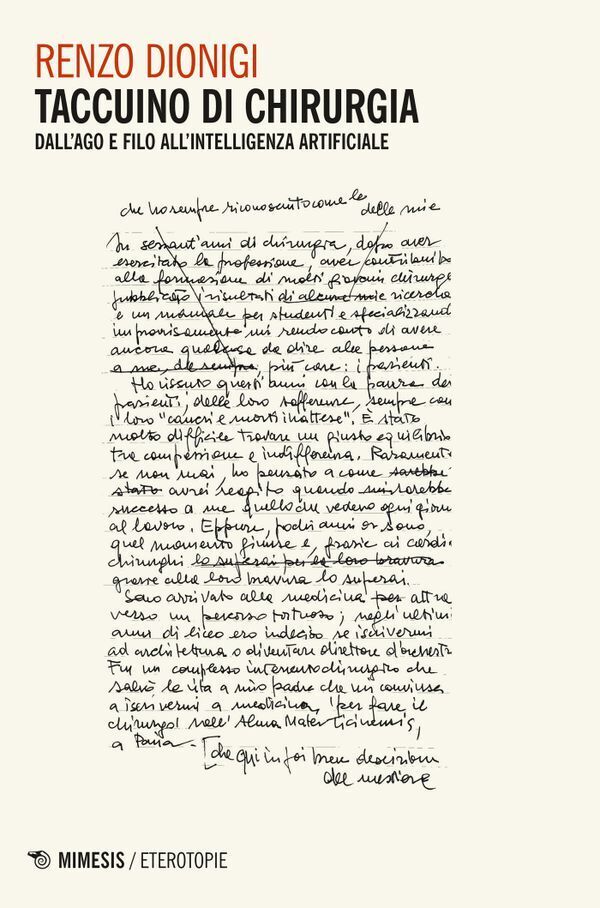 RENZO DIONIGI
TACCUINO DI CHIRURGIA
DALL'AGO E FILO ALL'INTELLIGENZA ARTIFICIALE
che ho sempre riconosciuto come le delle mie
In sessant'anni di chirurgia, dopo aver
esercitato la professione, aver contribuito
alla formazione di molti giovani chirurghi
pubblicato i risultati di alcune mie ricerche
e un manuale per studenti e specializzand
improvvisamente mi rendo conto di avere
ancora qualcosa da dire alle persone
a me, da sempre, più care: i pazienti.
Ho vissuto questi anni con la paura dei
pazienti, delle loro sofferenze, sempre con
i loro "cancri e morti inattese". È stato
molto difficile trovare un giusto equilibrio
tra compassione e indifferenza. Raramente
se non mai, ho pensato a come sarebbe
stato avrei reagito quando mi sarebbe
successo a me quello che vedevo ogni giorn
al lavoro. Eppure, pochi anni or sono,
quel momento giunse e, grazie ai cardio
chirurghi lo superai per la loro bravura
grazie alla loro bravura lo superai.
Sono arrivato alla medicina per attra
verso un percorso tortuoso; negli ultimi
anni di liceo ero indeciso se iscrivermi
ad architettura o diventare direttore d'orchestr
Fu un complesso intervento chirurgico che
salvò la vita a mio padre che mi convinse
a iscrivermi a medicina, "per fare il
chirurgo" nell'Alma Mater Ticinensis,
a Pavia. [che qui in poi
del mestiere
MIMESIS / ETEROTOPIE